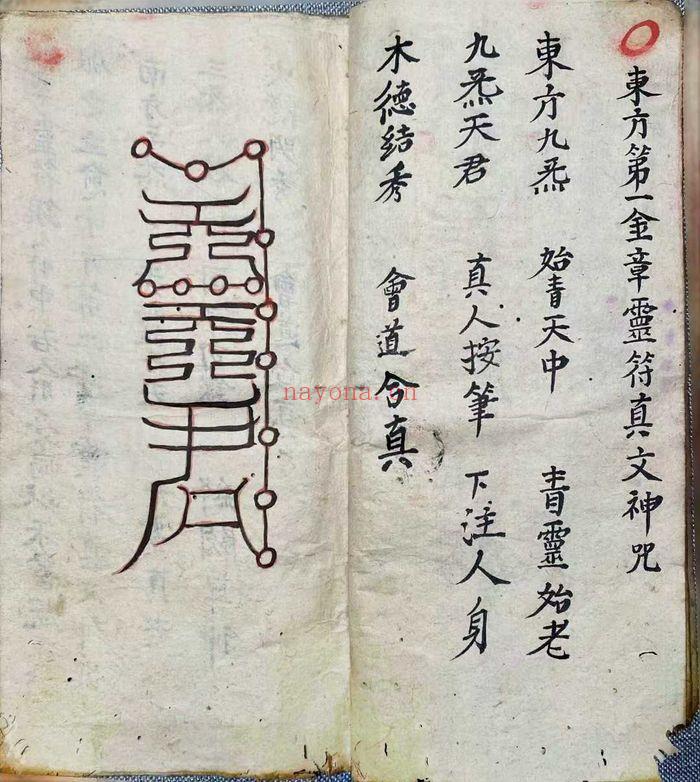 東方第一金章靈符真文神咒
東方九炁 始青天中 青靈始老
九炁天君 真人按筆 下注人身
木德結秀 會道合真
nayona.cn